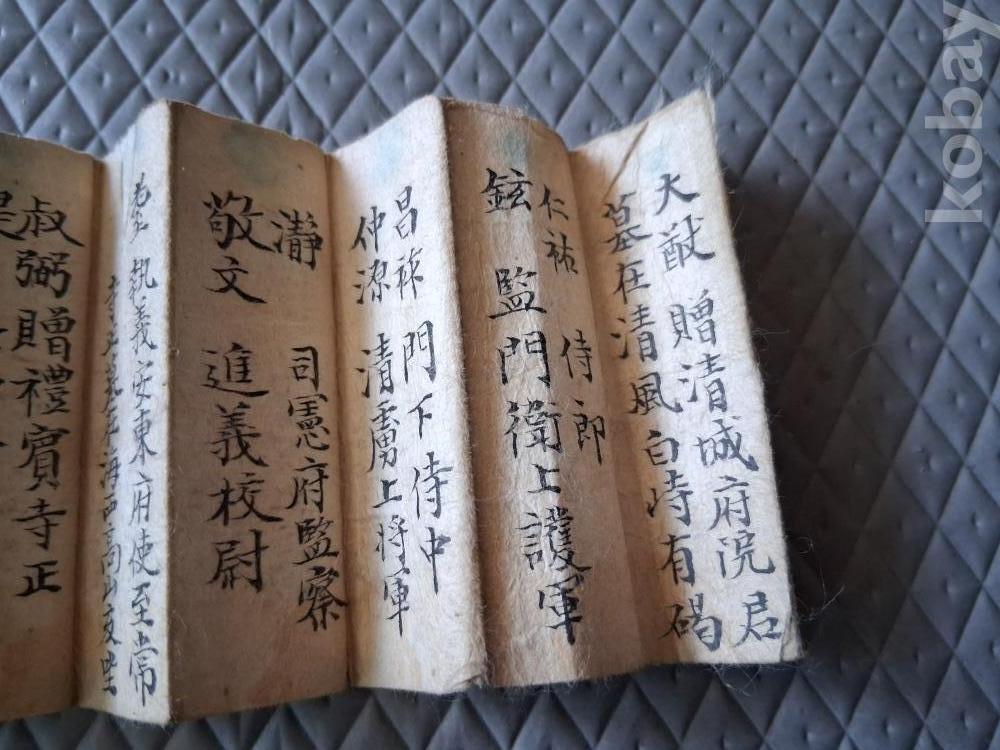 大猷 贈清城府院君
墓在清風白峙有碣
仁祐 侍郎
鉉 監門衛上護軍
昌祚 門下侍中
仲源 清虜上將軍
瀞 司憲府監察
敬文 進義校尉
執義安東府使至常
寺正墓在海西高山亥坐
叔弼贈禮賓寺正
kobay